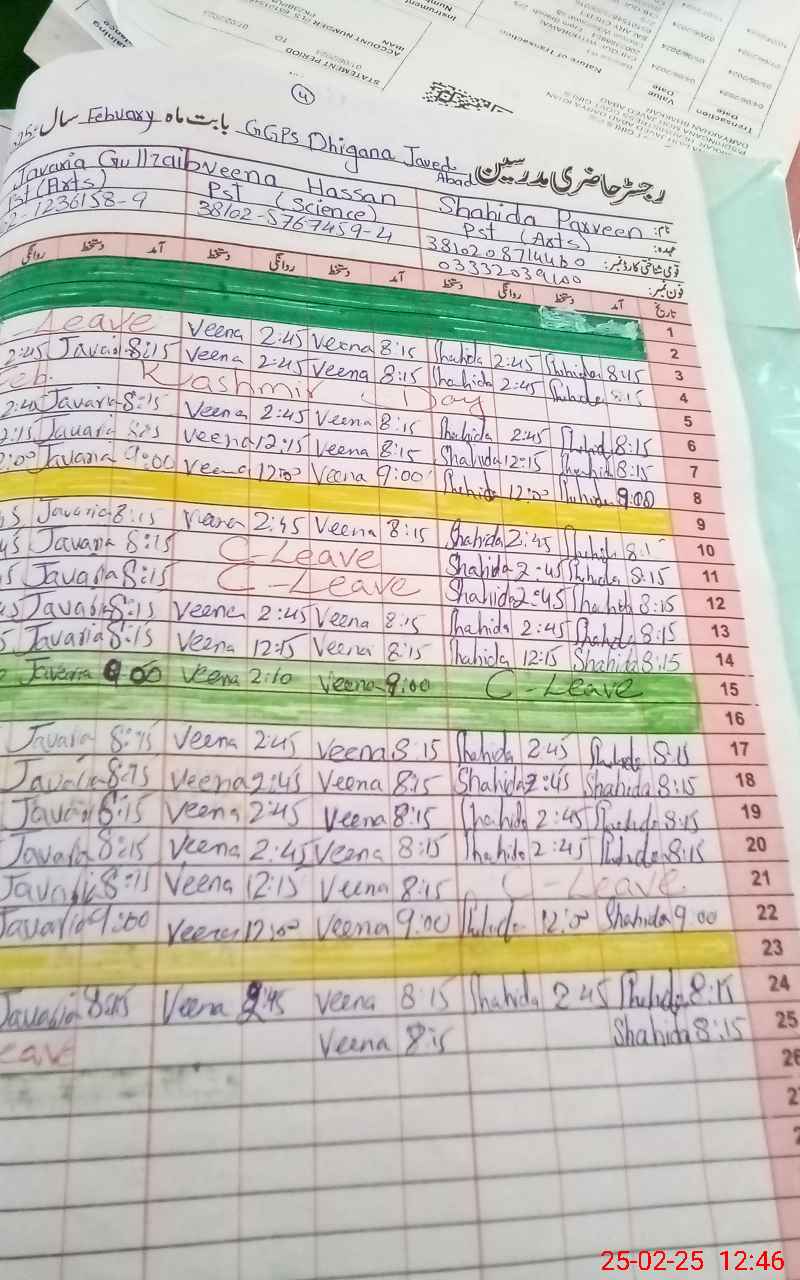 4
رجسٹر حاضری مدرسین GGPs Dhigana Javed Abad بابت ماہ Febuary سال
نام: Shahida Parveen Veena Hassan Javaria Gullzaib
عہدہ: Pst (Arts) Pst (Science) Pst (Arts)
قومی شناختی کارڈ نمبر: 3810208714460 38102-5767459-4 2-1236158-9
فون نمبر: 03332039100
تاریخ آمد دستخط روانگی دستخط آمد دستخط روانگی دستخط آمد دستخط روانگی
1
Leave Veena 2:45 Veena 8:15 Shahida 2:45 Shahida 8:15 2
2:45 Javaria 8:15 Veena 2:45 Veena 8:15 Shahida 2:45 Shahida 8:15 3
Feb. Kashmir Day 4
2:45 Javaria 8:15 Veena 2:45 Veena 8:15 Shahida 2:45 Shahida 8:15 5
2:15 Javaria 8:15 Veena 12:15 Veena 8:15 Shahida 12:15 Shahida 8:15 6
2:00 Javaria 9:00 Veena 12:00 Veena 9:00 Shahida 12:00 Shahida 9:00 7
8
Javaria 8:15 Veena 2:45 Veena 8:15 Shahida 2:45 Shahida 8:1 9
Javaria 8:15 C-Leave Shahida 2:45 Shahida 8:15 10
Javaria 8:15 C-Leave Shahida 2:45 Shahida 8:15 11
Javaria 8:15 Veena 2:45 Veena 8:15 Shahida 2:45 Shahida 8:15 12
Javaria 8:15 Veena 12:15 Veena 8:15 Shahida 12:15 Shahida 8:15 13
Javaria 9:00 Veena 2:10 Veena 9:00 C-Leave 14
15
16
Javaria 8:15 Veena 2:45 Veena 8:15 Shahida 2:45 Shahida 8:15 17
Javaria 8:15 Veena 2:45 Veena 8:15 Shahida 2:45 Shahida 8:15 18
Javaria 8:15 Veena 2:45 Veena 8:15 Shahida 2:45 Shahida 8:15 19
Javaria 8:15 Veena 2:45 Veena 8:15 Shahida 2:45 Shahida 8:15 20
Javaria 8:15 Veena 12:15 Veena 8:15 C-Leave 21
Javaria 9:00 Veena 12:00 Veena 9:00 Shahida 12:00 Shahida 9:00 22
23
Javaria 8:15 Veena 2:45 Veena 8:15 Shahida 2:45 Shahida 8:15 24
eave Veena 8:15 Shahida 8:15 25
26
2
2
STATEMENT PERIOD
01/08/2024 TO
ACCOUNT NUMBER
IBAN
Nature of Transaction
Instrument
Transaction Date
Value Date
25-02-25 12:46